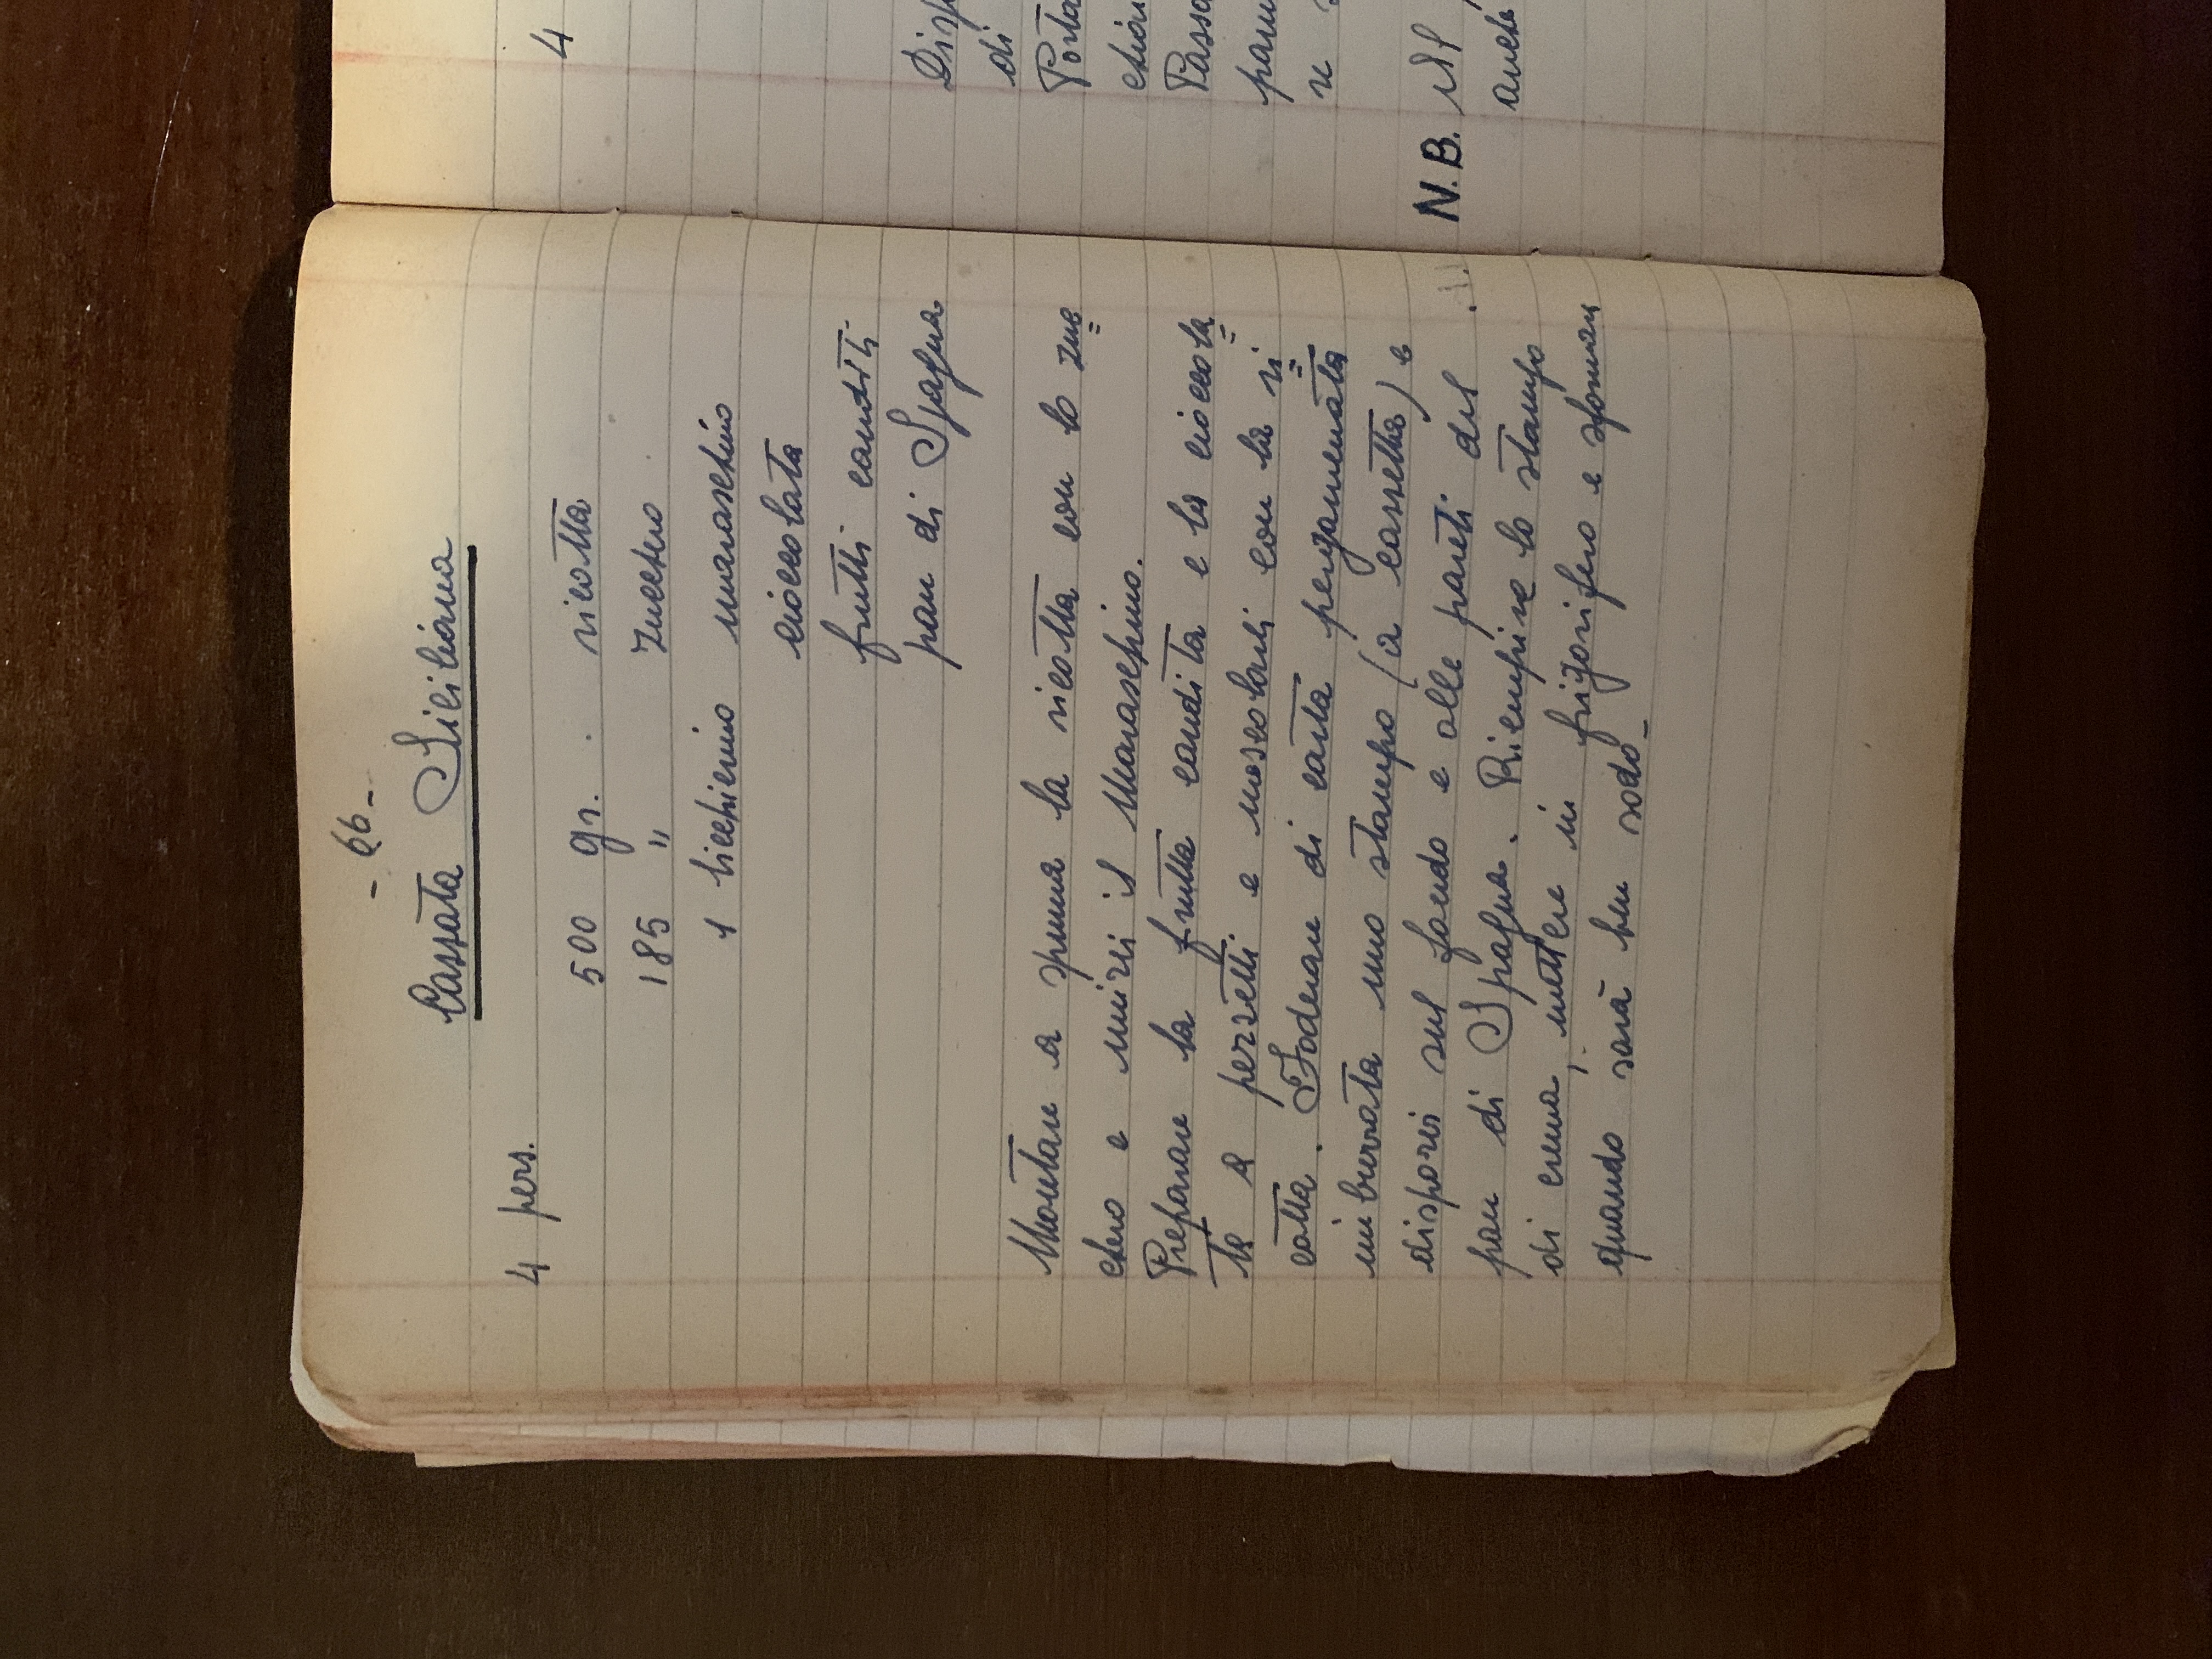 - 66 -
Cassata Siciliana
4 pers.
500 gr. ricotta
185 " zucchero
1 bicchierino maraschino
cioccolata
frutti canditi
pan di Spagna
Montare a spuma la ricotta con lo zuc
chero e unirci il Maraschino.
Preparare la frutta candita e la cioccola
ta a pezzetti e mescolarli con la ri
cotta. Foderare di carta pergamenata
imburrata uno stampo (a cassetta) e
disporci sul fondo e alle pareti del
pan di Spagna. Riempire lo stampo
di crema, mettere in frigorifero e sformare
quando sarà ben sodo_
4
Disp
di
Porta
chiar
Passa
pan
re s
N.B. Al
anche